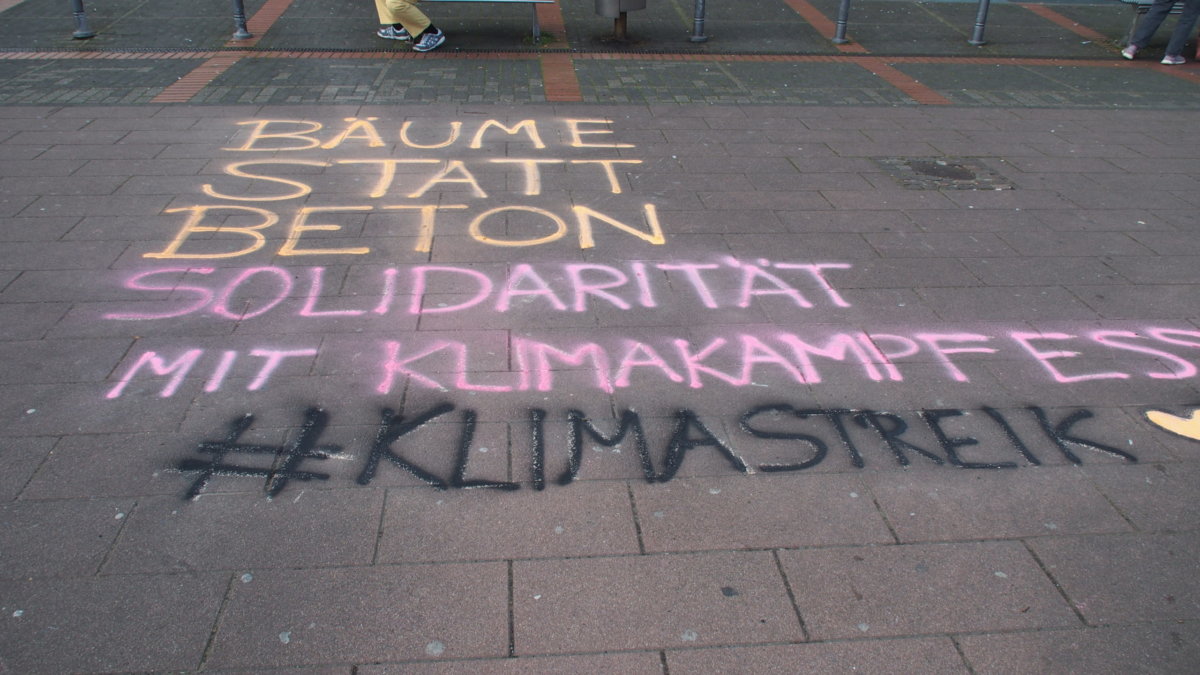 BÄUME
STATT
BETON
SOLIDARITÄT
MIT KLIMAKAMPF ESS
#KLIMASTREIK